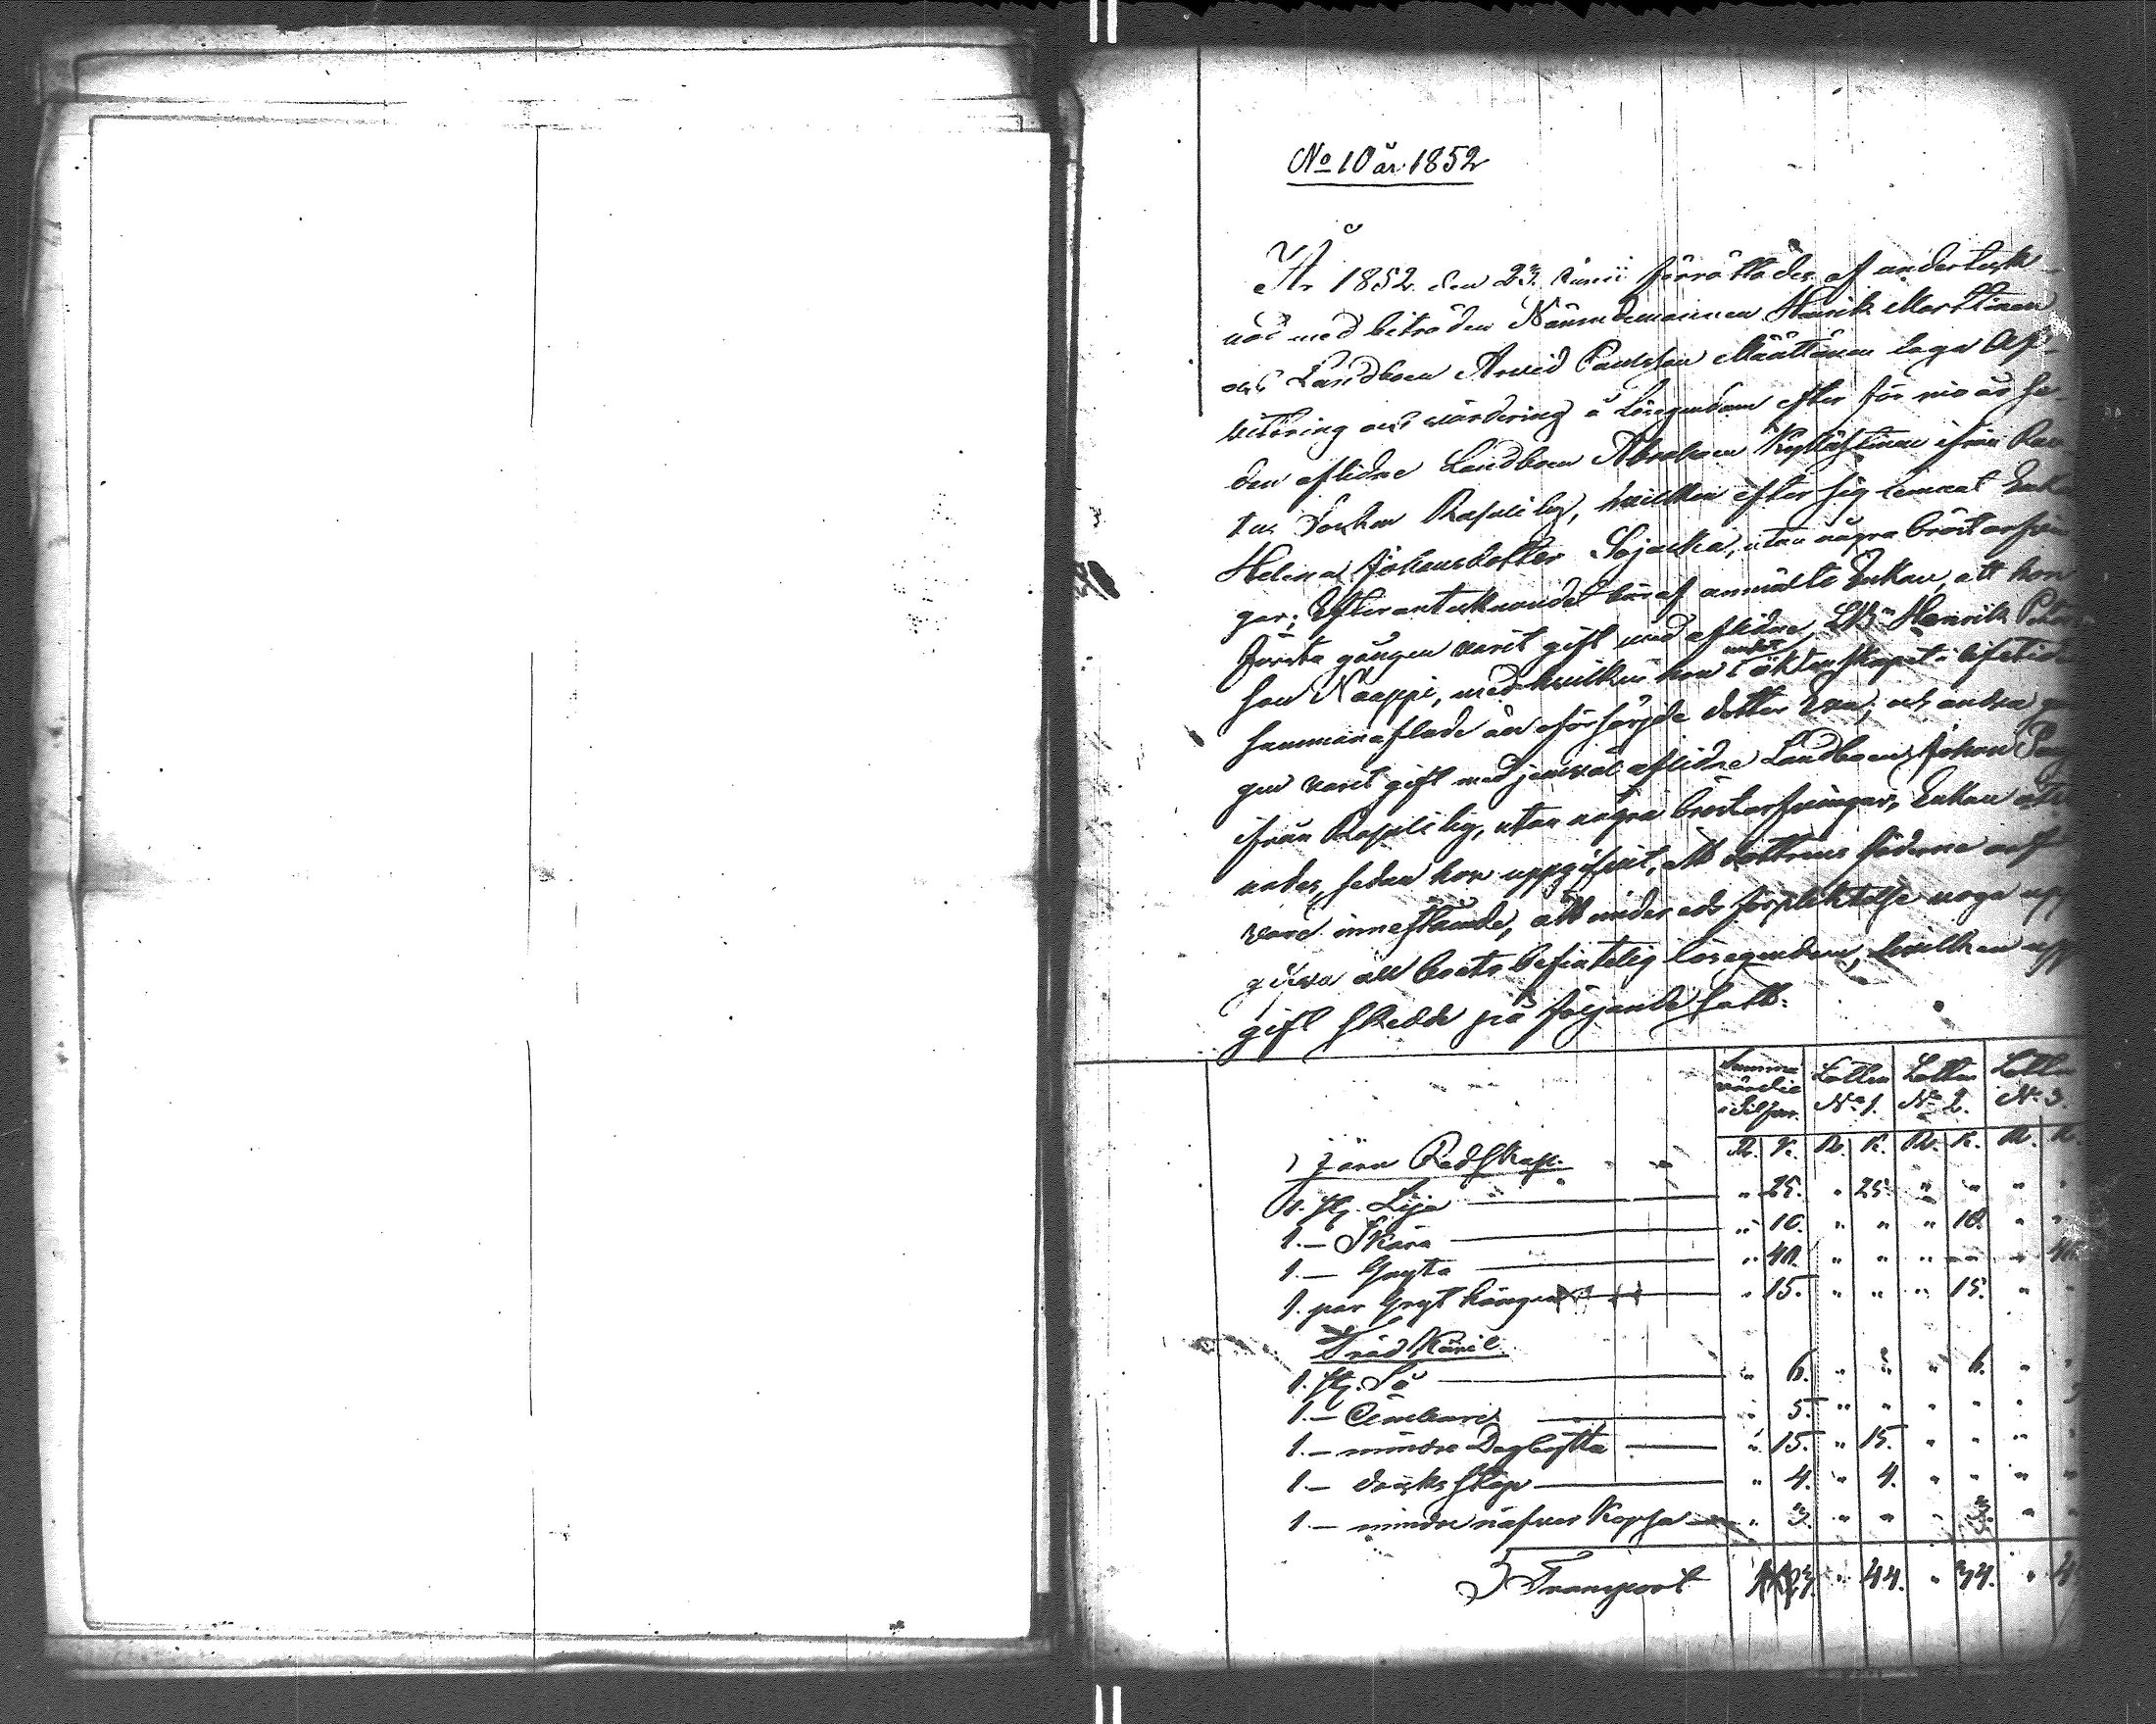 No 10 år 1852
År 1852 den 23 Junii förrättades af underteck-
nad med biträden Nämndemannen Henrik Marttinen
och Landboen Arvid Paulsson Määttänen laga Af-
vittring och värdering å Lösegendom efter för nio år se-
dan aflidne Landboen Abraham ifrån
Socken by, hvilken efter sig lemnat Enka
Helena Johansdotter utan några bröstarfvin-
gar; Efter antecknandet häraf anmälte Enkan, att hon
första gången varit gift med aflidne Henrik Peters-
son Naappi, med hvilken hon i under äktenskapet i lifstiden
sammanaflade än oförsörjde dotter Eva; och andra gån
gen varit gift med jemväl aflidne Landboen Johan
ifrån by, utan några bröstarfvingar. Enkan
nades, sedan hon uppgifvit, att dottrens fäderne arf
vore innestående, att under eds förpliktelse noga upp
gifva all boets befintelig lösegendom, hvilken upp
gift skedde på följande sätt:
Summa värdie i Silfver. Lotten No 1. Lotten No 2. Lotten No 3.
R. K. R. K. R. K. R. K.
Järn Redskap.
1. st. Lija " 25. " 25. " " " "
1. — Skära " 10. " " " 10. " "
1. — Gryta " 40. " " " " " 40.
1. par Gryt hängen " 15. " " " 15. " "
Träd Käril
1. st. Så " 6. " " " 6. " "
1. — Ämbare " 5. " " " " " 5
1. — mindre Degbytta " 15. " 15. " " " "
1. — dricks stop " 4. " 4. " " " "
1. — mindre näfver Kopsa " 3. " " " 3. " "
Transport " 44. " 34. " 4